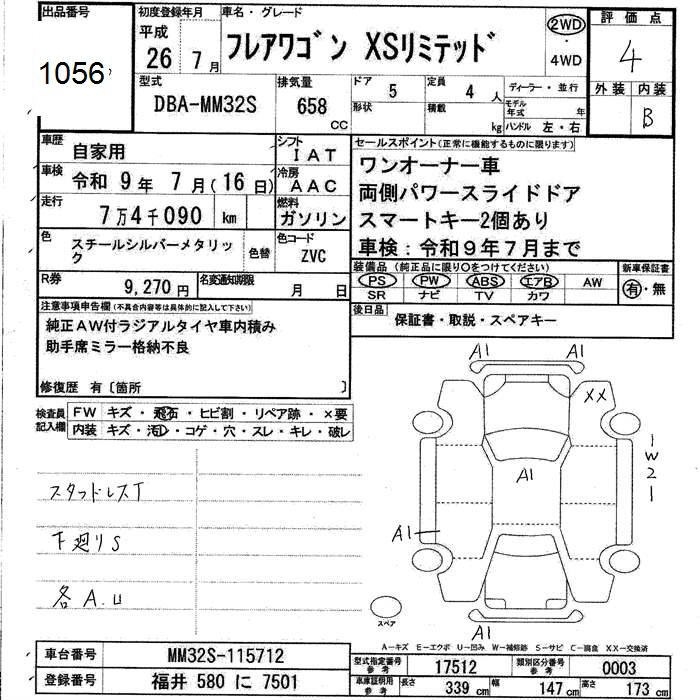 出品番号
1056
初度登録年月
平成
26年 7月
車名・グレード
フレアワゴン XSリミテッド
2WD
・
4WD
評価点
4
外装 内装
B
型式
DBA-MM32S
排気量
658
CC
ドア
5
形状
定員
4人
積載
kg
ディーラー・並行
モデル年式 年
ハンドル 左・右
車歴
自家用
シフト
IAT
車検
令和 9年 7月(16日)
冷房
AAC
走行
7万4千090 km
燃料
ガソリン
色
スチールシルバーメタリック
色替
色コード
ZVC
R券
9,270円
名変通知期限
月 日
セールスポイント(正常に機能するものに限ります)
ワンオーナー車
両側パワースライドドア
スマートキー2個あり
車検:令和9年7月まで
装備品(純正品に限り○をつけてください)
PS PW ABS エアB AW
SR ナビ TV カワ
新車保証書
有・無
後日品
保証書・取説・スペアキー
注意事項申告欄(不具合内容等は具体的に記入して下さい)
純正AW付ラジアルタイヤ車内積み
助手席ミラー格納不良
修復歴 有〔箇所 〕
検査員記入欄
FW キズ・飛石・ヒビ割・リペア跡・×要
内装 キズ・汚レ・コゲ・穴・スレ・キレ・破レ
スタッドレスT
下廻りS
各A.U
A1
A1
XX
A1
1
W2
1
A1
A1
スペア
A-キズ E-エクボ U-凹み W-補修跡 S-サビ C-腐食 XX-交換済
車台番号
MM32S-115712
登録番号
福井 580 に 7501
型式指定番号
参考
17512
類別区分番号
参考
0003
車庫証明用
参考
長さ 339 cm
幅 147 cm
高さ 173 cm